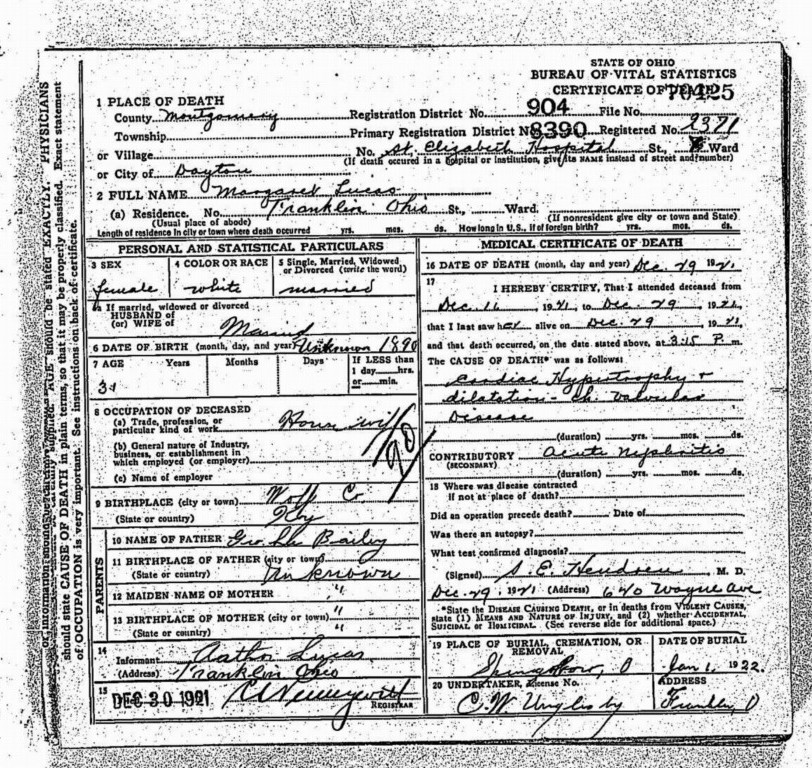 STATE OF OHIO
BUREAU OF VITAL STATISTICS
CERTIFICATE OF
70425
1 PLACE OF DEATH
County Montgomery Registration District No. 904 File No.
Township Primary Registration District No. 8390 Registered No. 2371
or Village No. St. Elizabeth Hospital St., Ward
(If death occured in a hospital or institution, give its NAME instead of street and number)
or City of Dayton
2 FULL NAME Margaret Lucas
(a) Residence. No. Franklin Ohio St., Ward.
(Usual place of abode) (If nonresident give city or town and State)
Length of residence in city or town where death occurred yrs. mos. ds. How long in U.S., if of foreign birth? yrs. mos. ds.
PERSONAL AND STATISTICAL PARTICULARS
3 SEX 4 COLOR OR RACE 5 Single, Married, Widowed
or Divorced (write the word)
female white married
5a If married, widowed or divorced
HUSBAND of
(or) WIFE of Married
6 DATE OF BIRTH (month, day, and year) Unknown 1890
7 AGE Years Months Days If LESS than
1 day hrs.
or min.
31
8 OCCUPATION OF DECEASED
(a) Trade, profession, or
particular kind of work House wife
(b) General nature of Industry,
business, or establishment in
which employed (or employer)
(c) Name of employer
90
9 BIRTHPLACE (city or town) Wolf Co
(State or country) Ky
PARENTS
10 NAME OF FATHER Bailey
11 BIRTHPLACE OF FATHER (city or town)
(State or country) Unknown
12 MAIDEN NAME OF MOTHER "
13 BIRTHPLACE OF MOTHER (city or town) "
(State or country) "
14
Informant Lucas
(Address) Franklin Ohio
15 DEC 30 1921
REGISTRAR
MEDICAL CERTIFICATE OF DEATH
16 DATE OF DEATH (month, day and year) Dec. 29 1921
17
I HEREBY CERTIFY, That I attended deceased from
Dec. 16, 1921, to Dec. 29, 1921,
that I last saw her alive on Dec. 29, 1921,
and that death occurred, on the date stated above, at 3:15 P. m.
The CAUSE OF DEATH* was as follows:
Cardiac Hypertrophy +
dilatation - ch. valvular
Disease
(duration) yrs. mos. ds.
CONTRIBUTORY Acute Nephritis
(SECONDARY)
(duration) yrs. mos. ds.
18 Where was disease contracted
if not at place of death?
Did an operation precede death? Date of
Was there an autopsy?
What test confirmed diagnosis?
(Signed) S. E. Hendren M. D.
Dec. 29, 1921 (Address) 620 Wayne Ave
*State the DISEASE CAUSING DEATH, or in deaths from VIOLENT CAUSES,
state (1) MEANS AND NATURE OF INJURY, and (2) whether ACCIDENTAL,
SUICIDAL or HOMICIDAL. (See reverse side for additional space.)
19 PLACE OF BURIAL, CREMATION, OR
REMOVAL
DATE OF BURIAL
Jan 1, 1922
20 UNDERTAKER, License No. ADDRESS
C. W. Unglesby Franklin, O
AGE should be stated EXACTLY. PHYSICIANS
should state CAUSE OF DEATH in plain terms, so that it may be properly classified. Exact statement
of OCCUPATION is very important. See instructions on back of certificate.